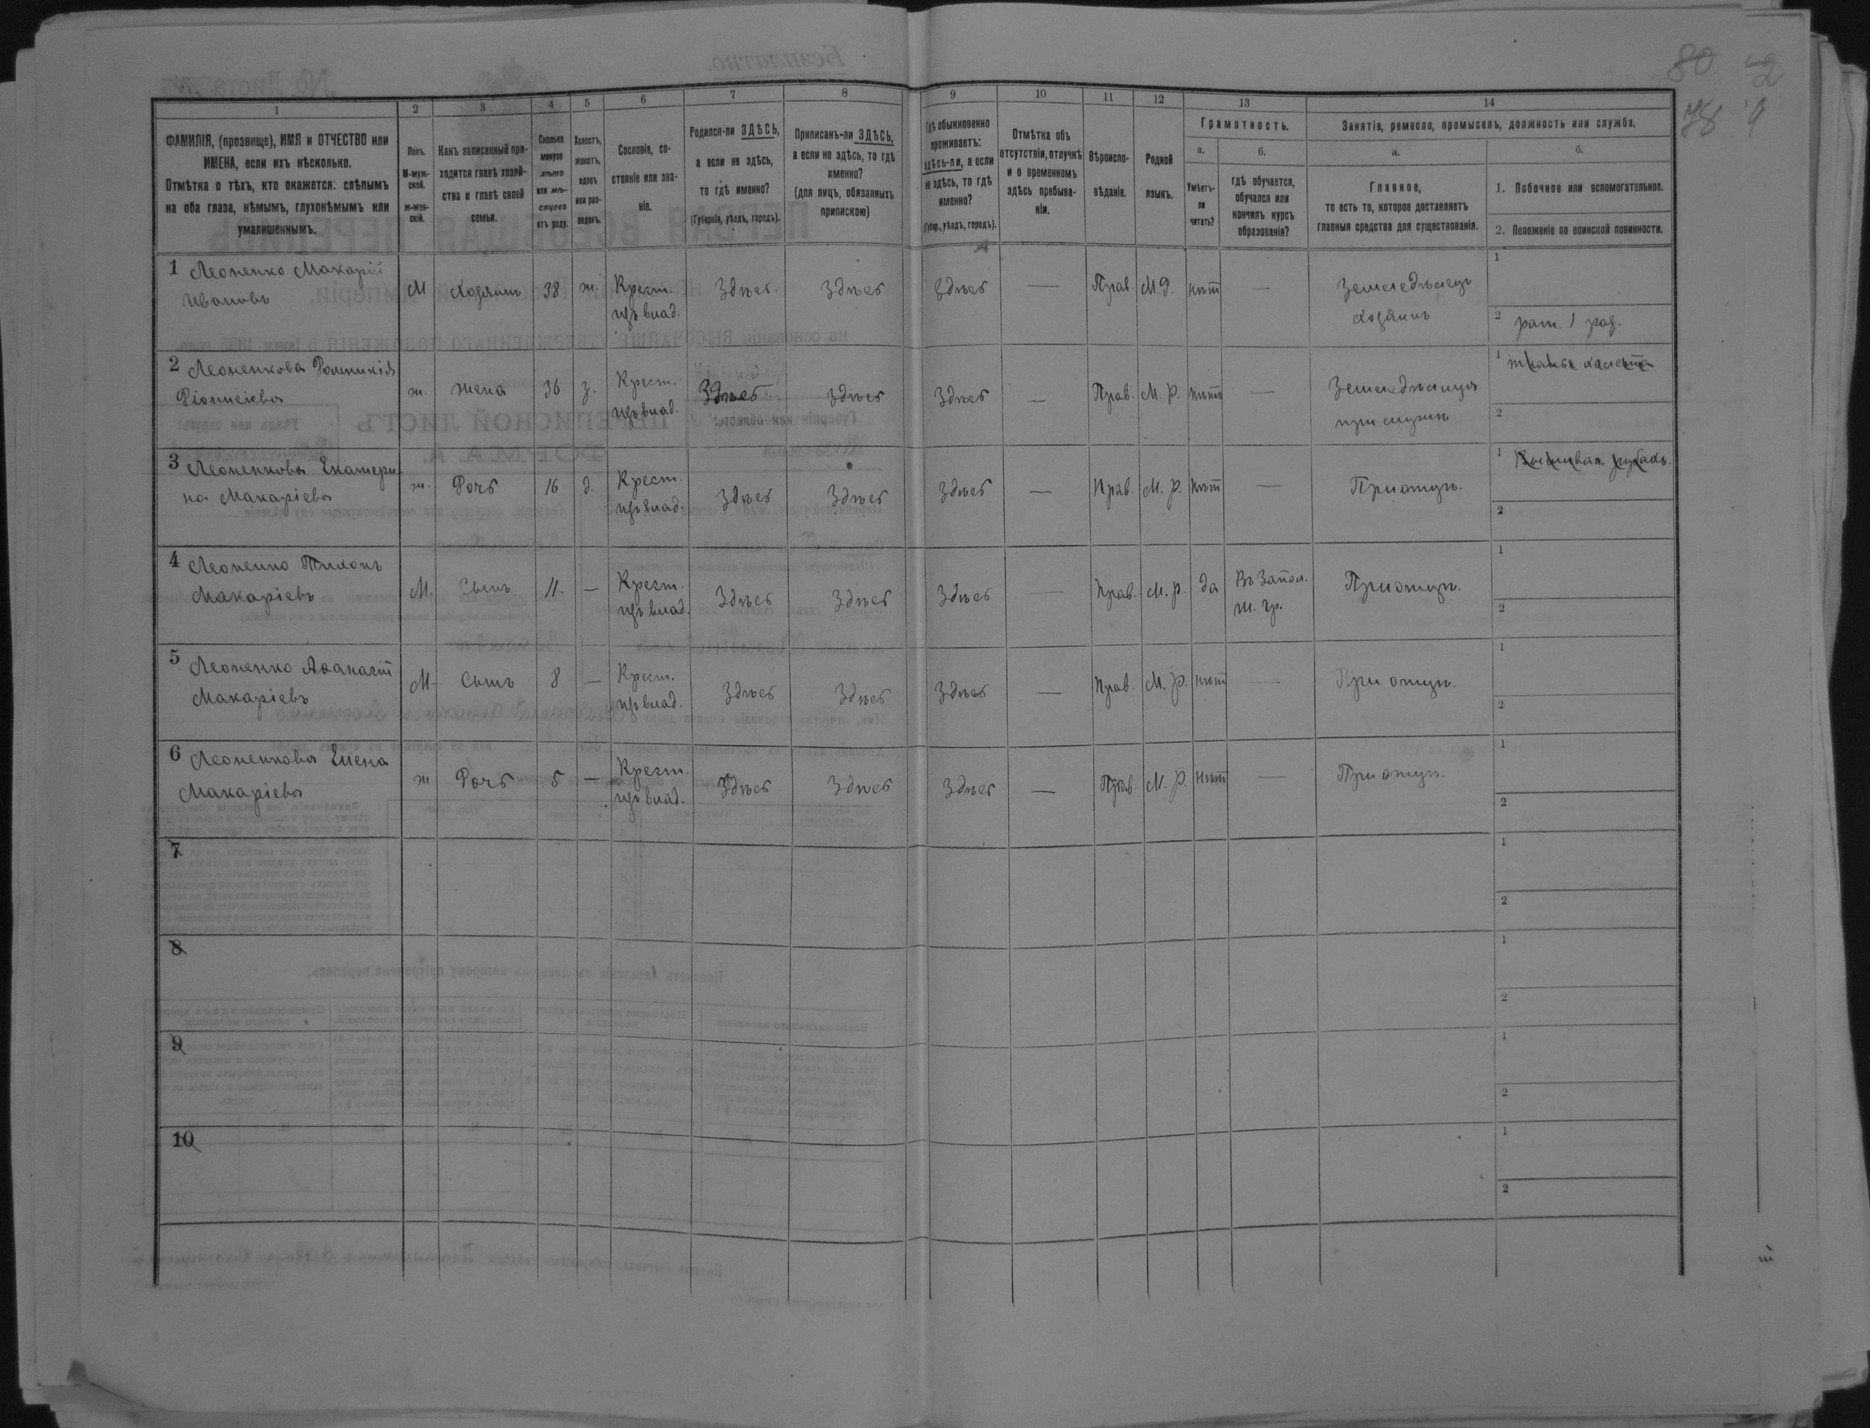 80
78
1
2
3
4
5
6
7
8
9
10
11
12
13
14
ФАМИЛІЯ, (прозвище), ИМЯ и ОТЧЕСТВО или
ИМЕНА, если ихъ нѣсколько.
Отмѣтка о тѣхъ, кто окажется: слѣпымъ
на оба глаза, нѣмымъ, глухонѣмымъ или
умалишеннымъ.
Полъ.
М-муж-
ской.
Ж-жен-
скій.
Какъ записанный при-
ходится главѣ хозяй-
ства и главѣ своей
семьи.
Сколько
минуло
лѣтъ
или мѣ-
сяцевъ
отъ роду.
Холостъ,
женатъ,
вдовъ
или раз-
веденъ.
Сословіе, со-
стояніе или зва-
ніе.
Родился-ли ЗДѢСЬ,
а если не здѣсь,
то гдѣ именно?
(Губернія, уѣздъ, городъ).
Приписанъ-ли ЗДѢСЬ,
а если не здѣсь, то гдѣ
именно?
(для лицъ, обязанныхъ
припискою)
Гдѣ обыкновенно
проживаетъ:
здѣсь-ли, а если
не здѣсь, то гдѣ
именно?
(Губер., уѣздъ, городъ).
Отмѣтка объ
отсутствіи, отлучкѣ
и о временномъ
здѣсь пребыва-
ніи.
Вѣроиспо-
вѣданіе.
Родной
языкъ.
Грамотность.
а.
Умѣетъ-
ли
читать?
б.
гдѣ обучается,
обучался или
кончилъ курсъ
образованія?
Занятіе, ремесло, промыселъ, должность или служба.
а.
Главное,
то есть то, которое доставляетъ
главныя средства для существованія.
б.
1. Побочное или вспомогательное.
2. Положеніе по воинской повинности.
1 Леоненко Макарій
Ивановъ
М
Хозяинъ
38
ж.
Крест.
изъ влад.
Здѣсь
Здѣсь
Здѣсь
—
Прав.
М.Р.
нѣт
—
Земледѣлецъ
хозяинъ
1
2 рат. 1 раз.
2 Леоненкова
Діонисіева
ж.
жена
36
з.
Крест.
изъ влад.
Здѣсь
Здѣсь
Здѣсь
—
Прав.
М. Р.
нѣтъ
—
Земледѣлица
при мужѣ
1
2
3 Леоненкова Екатери
на Макаріева
ж.
Дочь
16
д.
Крест.
изъ влад.
Здѣсь
Здѣсь
Здѣсь
—
Прав.
М. Р.
нѣт
—
При отцѣ.
1
2
4 Леоненко Тихонъ
Макаріевъ
М.
Сынъ
11.
—
Крест.
изъ влад.
Здѣсь
Здѣсь
Здѣсь
—
Прав.
М. Р.
да
При отцѣ.
1
2
5 Леоненко Афанасій
Макаріевъ
М.
Сынъ
8
—
Крест.
изъ влад.
Здѣсь
Здѣсь
Здѣсь
—
Прав.
М. Р.
нѣт
—
При отцѣ.
1
2
6 Леоненкова Елена
Макаріева
ж
Дочь
5
—
Крест.
изъ влад.
Здѣсь
Здѣсь
Здѣсь
—
Прав
М. Р.
нѣт
—
При отцѣ.
1
2
7
1
2
8
1
2
9
1
2
10
1
2